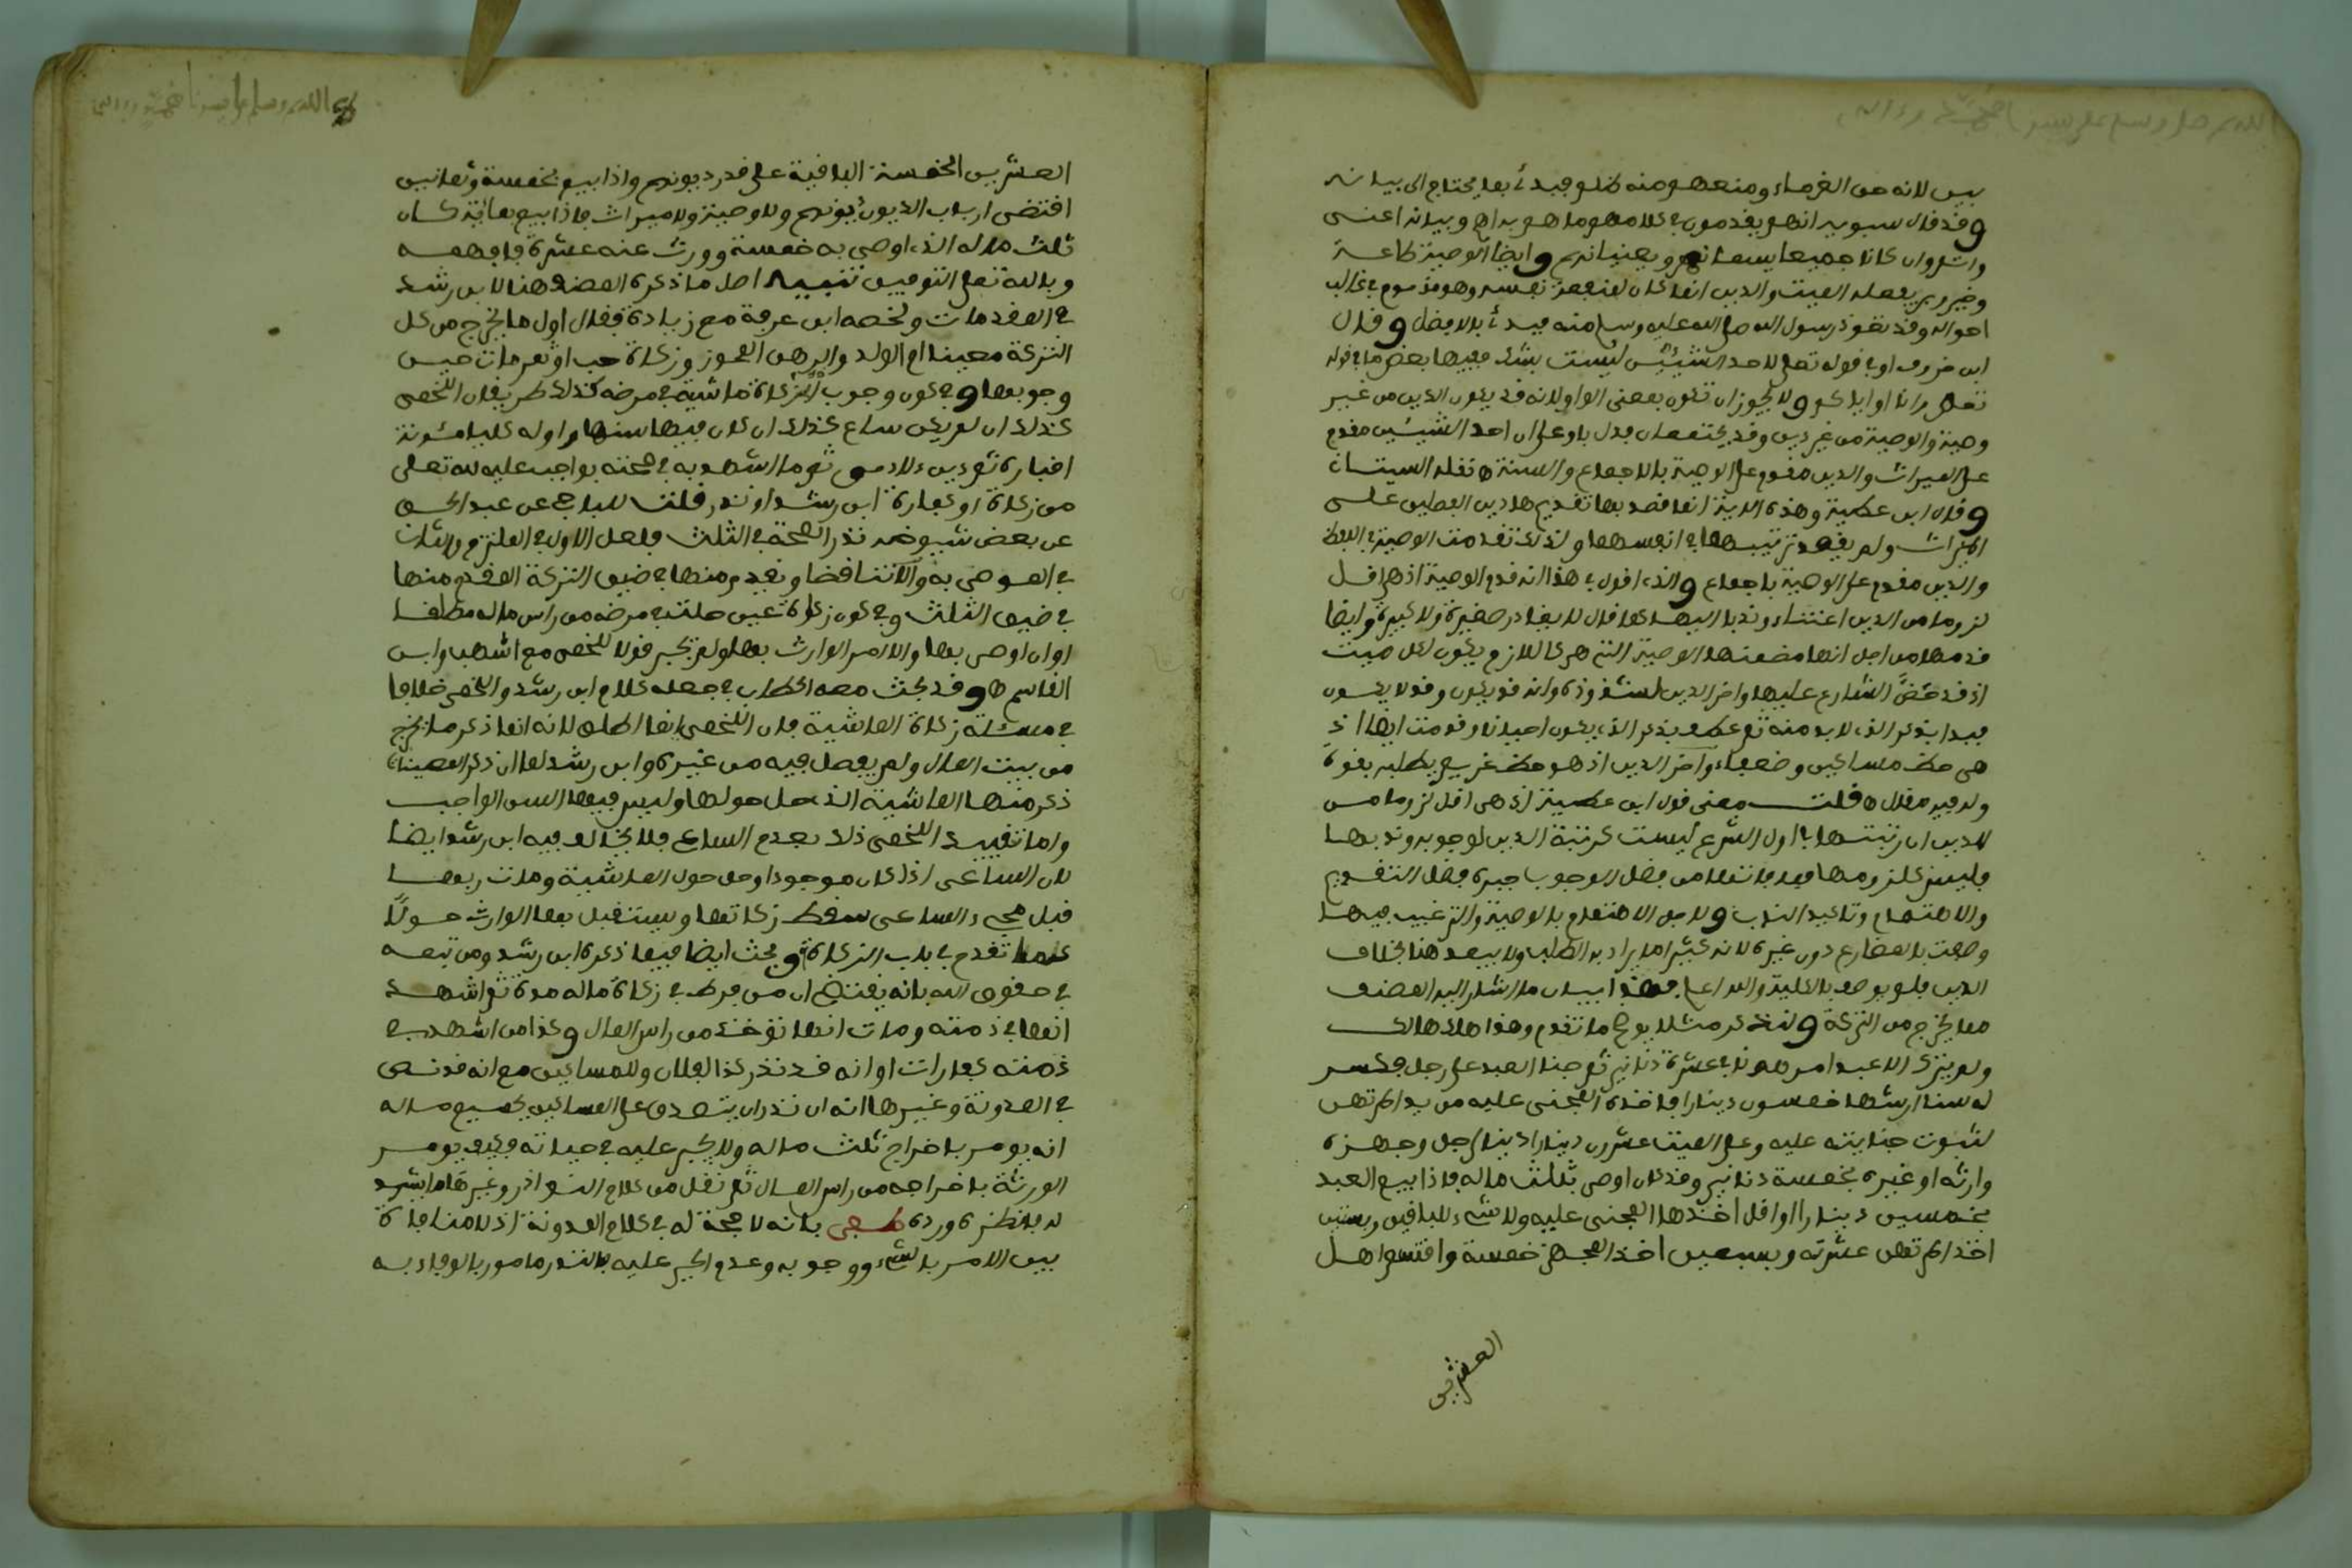 اللهم صل وسلم على سيدنا محمد وءاله
بين لانه من الغرماء ومنعهم منه ظلم فيبدأ بما يحتاج الى بيانه
وقد قال سيبويه انهم يقدمون في كلامهم ما هو به اهم وبيانه اعنى
واشد وان كانا جميعا يهمانهم ويعنيانهم وايضا الوصية طاعة
وخير وبر يفعله الميت والدين انما كان لمنفعة نفسه وهو مذموم في غالب
احواله وقد تعوذ رسول الله صلى الله عليه وسلم منه فيبدأ بالافضل وقال
ابن خروف او في قوله تعلى لاحد الشيئين ليست بشك ففيها بعض ما في قوله
تعلى وانا او اياكم ولا يجوز ان تكون بمعنى الواو لانه قد يكون الدين من غير
وصية والوصية من غير دين وقد يجتمعان فدل باو على ان احد الشيئين مقدم
على الميراث والدين مقدم على الوصية بالاجماع والسنة ه نقله البستان
وقال ابن عطية وهذه الاية انما قصد بها تقديم هاذين الفعلين على
الميراث ولم يقصد ترتيبهما في انفسهما ولذلك تقدمت الوصية في اللفظ
والدين مقدم على الوصية باجماع والذي اقول في هذا انه قدم الوصية اذ هي اقل
لزوما من الدين اعتناء وندبا اليها كما قال لا يغادر صغيرة ولا كبيرة وايضا
قدمها من اجل انها مضمنها الوصية التي هي كاللازم يكون لكل ميت
اذ قد حض الشارع عليها واخر الدين لشذوذه وانه قد يكون وقد لا يكون
فبدا بذكر الذي لا بد منه ثم عطف بذكر الذي يكون احيانا وقدمت ايضا اذ
هي حظ مساكين وضعفاء واخر الدين اذ هو حظ غريم يطلبه بقوة
وله فيه مقال ه قلت معنى قول ابن عطية اذ هي اقل لزوما من
الدين ان رتبتها في اول الشرع ليست كرتبة الدين لوجوبه وندبها
والاهتمام وتاكيد الندب ولاجل الاهتمام بالوصية والترغيب فيها
وصفت بالمضارع دون غيره لانه كثيرا ما يراد به الطلب ولا يبعد هنا بخلاف
الدين فلم يوصف بالكلية والله اعلم فهذا بيان ما اشار اليه المصنف
مما يخرج من التركة ولنذكر مثالا يوضح ما تقدم وهو اذا هلك هالك
ولم يترك الا عبدا مرهونا في عشرة دنانير ثم جنا العبد على رجل فكسر
له سنا ارشها خمسون دينارا فاخذه المجني عليه من يد المرتهن
لثبوت جنايته عليه وعلى الميت عشرون دينارا دينا لرجل وجهزه
وارثه او غيره بخمسة دنانير وقد كان اوصى بثلث ماله فاذا بيع العبد
بخمسين دينارا او اقل اخذها المجني عليه ولا شيء للباقين وبستين
اخذ المرتهن عشرته وبسبعين اخذ المجهز خمسة واقتسم اهل
العشرين
اللهم وسلم على سيدنا محمد وءاله
العشرين الخمسة الباقية على قدر ديونهم واذا بيع بخمسة وثمانين
اقتضى ارباب الديون ديونهم ولا وصية ولا ميراث فاذا بيع بمائة كان
ثلث ماله الذي اوصى به خمسة وورث عنه عشرة فافهمه
وبالله تعلى التوفيق تنبيه اصل ما ذكره المصنف هنا لابن رشد
في المقدمات ولخصه ابن عرفة مع زيادة فقال اول ما يخرج من كل
التركة معينا ام الولد والرهن المحوز وزكاة حب او تمر مات حين
وجوبها وفي كون وجوب الزكاة ماشية في مرضه كذلك طريقان اللخمي
كذلك ان لم يكن ساع كذلك ان كان فيها سنها واوله كليا مئونة
اقباره ثم دين ءلادمي ثم ما اشهد به في صحته بواجب عليه لله تعلى
من زكاة او كفارة ابن رشد او نذر قلت للباجي عن عبد الحق
عن بعض شيوخه نذر الصحة في الثلث فلعل الاول في الملتزم والثاني
في الموصى به والا تناقضا ويقدم منها في ضيق التركة المقدم منها
في ضيق الثلث وفي كون زكاة عين حلت في مرضه من راس ماله مطلقا
او ان اوصى بها والا امر الوارث بها ولم يجبر قولا اللخمي مع اشهب وابن
القاسم ه وقد بحث معه الحطاب في جعله كلام ابن رشد واللخمي خلافا
في مسئلة زكاة الماشية فان اللخمي انما اطلق لانه انما ذكر ما يخرج
من بيت المال ولم يفصل فيه من غيره وابن رشد لما ان ذكر المعينات
ذكر منها الماشية الذي حل حولها وليس فيها السن الواجب
واما تقييد اللخمي ذلك بعدم الساعي فلا يخالف فيه ابن رشد ايضا
لان الساعي اذا كان موجودا وحل حول الماشية ومات ربها
قبل مجيء الساعي سقط زكاتها ويستقبل بها الوارث حولا
كما تقدم في باب الزكاة وبحث ايضا فيما ذكره ابن رشد ومن تبعه
في حقوق الله بانه يقتضي ان من فرط في زكاة ماله مدة ثم اشهد
انها في ذمته ومات انها تؤخذ من راس المال وكذا من اشهد في
ذمته كفارات او انه قد نذر كذا لفلان وللمساكين مع انه قد نص
في المدونة وغيرها انه ان نذر ان يتصدق على المساكين بجميع ماله
انه يومر باخراج ثلث ماله ولا يجبر عليه في حياته فكيف يومر
الورثة باخراجه من راس المال ثم نقل من كلام النوادر وغيرها ما يشهد
له فانظره ورده طفى بانه لا حجة له في كلام المدونة اذ لا منافاة
بين الامر بالشيء ووجوبه وعدم الجبر عليه فالنذر مامور بالوفاء به